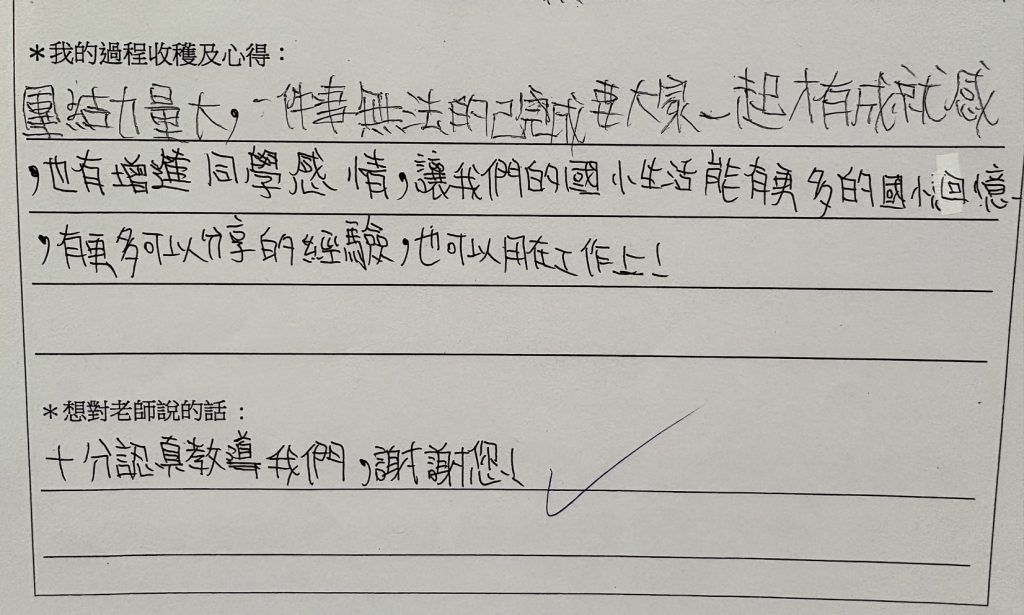 ＊我的過程收穫及心得：
團結力量大，一件事無法的己完成要大家一起才有成就感
，也有增進同學感情，讓我們的國小生活能有更多的國小回憶
，有更多可以分享的經驗，也可以用在工作上！
＊想對老師說的話：
十分認真教導我們，謝謝您！